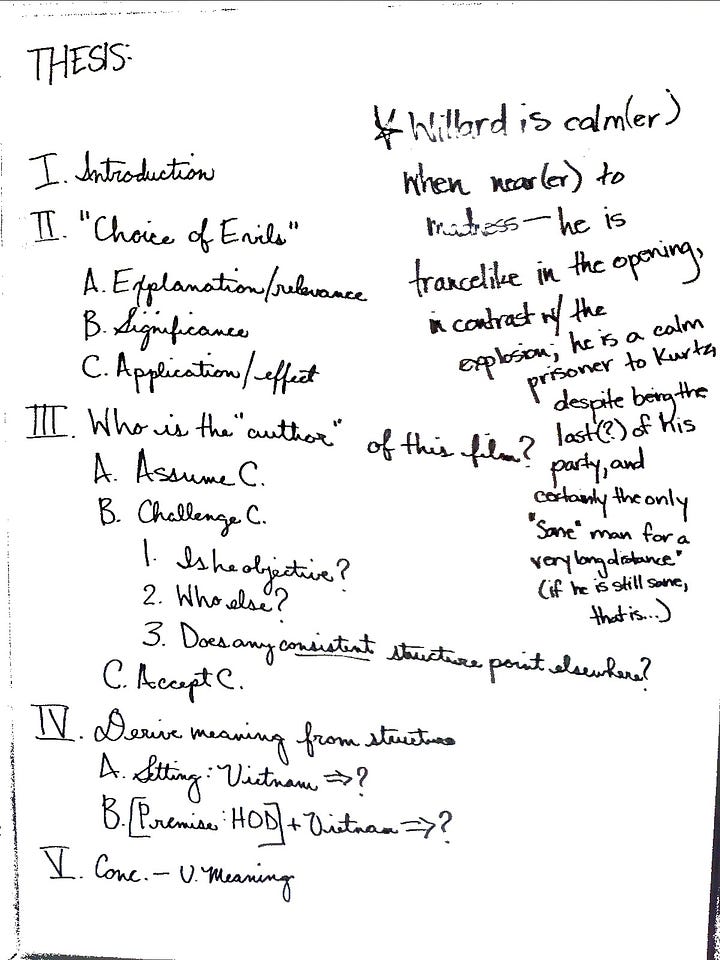 THESIS:
I. Introduction
II. "Choice of Evils"
A. Explanation/relevance
B. Significance
C. Application/effect
III. Who is the "author" of this film?
A. Assume C.
B. Challenge C.
1. Is he objective?
2. Who else?
3. Does any consistent structure point elsewhere?
C. Accept C.
IV. Derive meaning from structure
A. Setting: Vietnam ⇒?
B. [Premise: HOD] + Vietnam ⇒?
V. Conc. — U. Meaning
* Willard is calm(er)
when near(er) to
madness — he is
trancelike in the opening,
in contrast w/ the
explosion; he is a calm
prisoner to Kurtz,
despite being the
last(?) of his
party, and
certainly the only
"sane" man for a
very long distance"
(if he is still sane,
that is...)